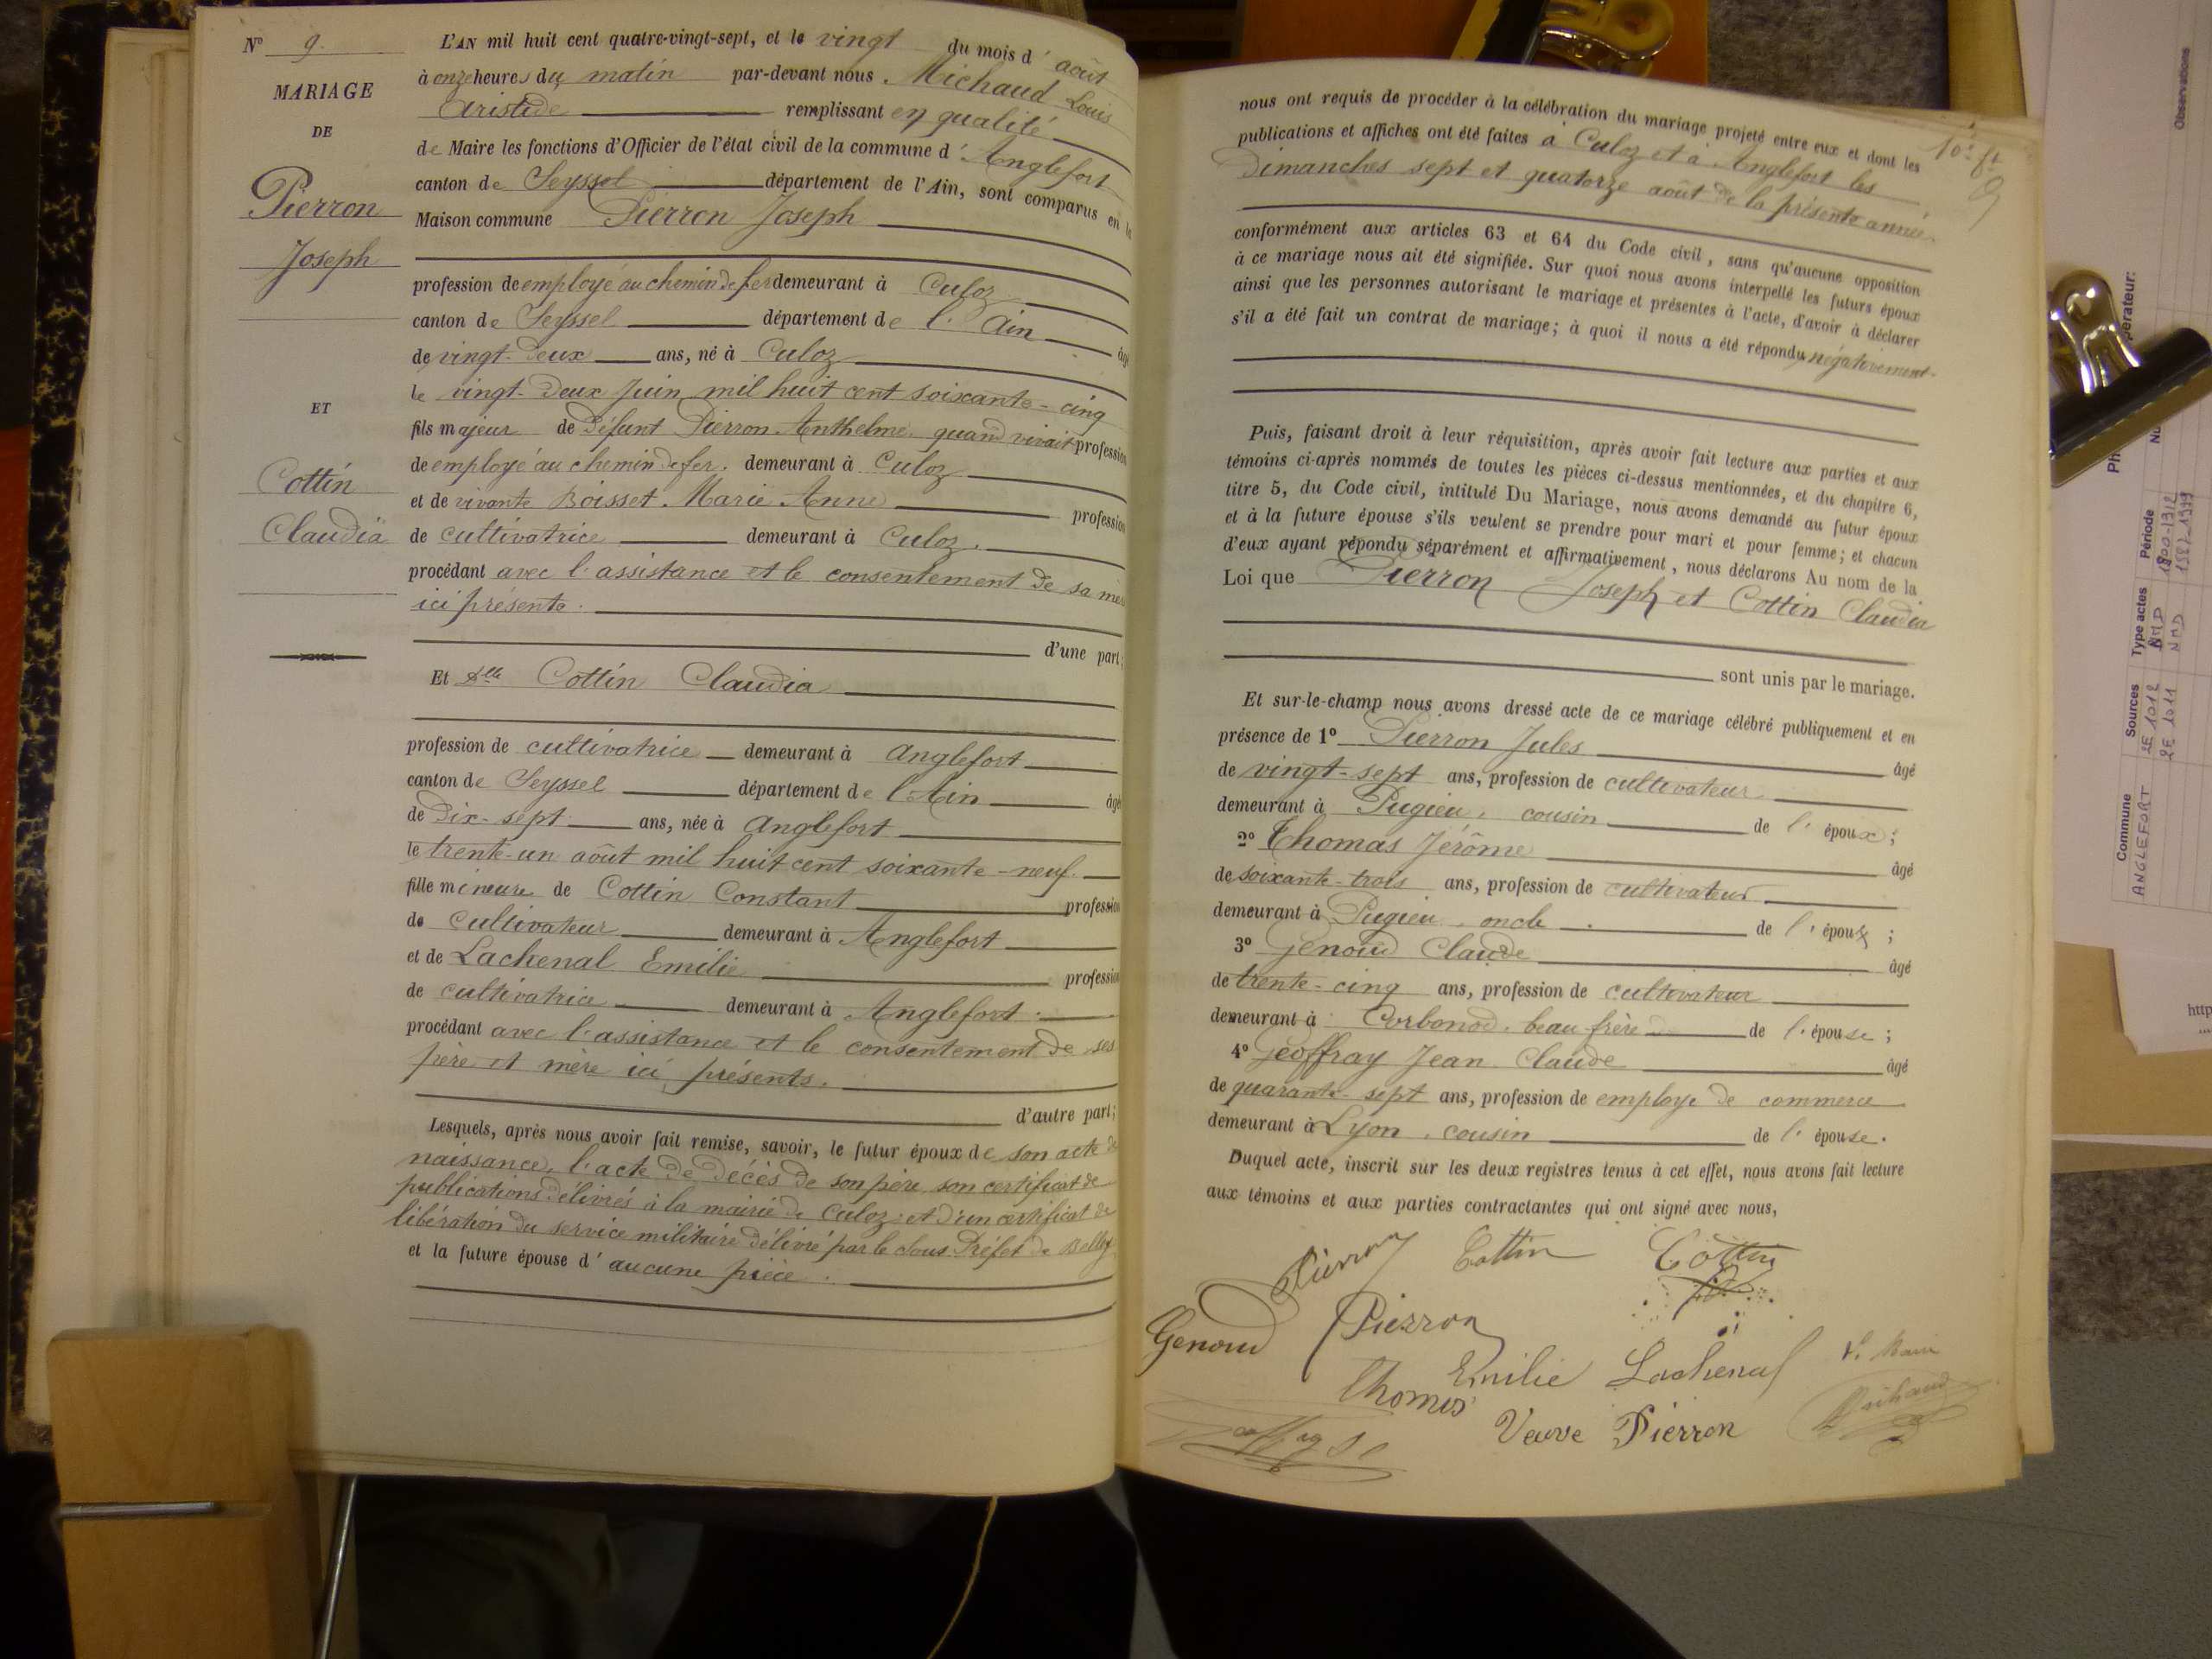 N° 9.
MARIAGE
DE
Pierron
Joseph
ET
Cottin
Claudia
L'AN mil huit cent quatre-vingt-sept, et le vingt du mois d'août
à onze heures du matin par-devant nous. Michaud Louis
Aristide remplissant en qualité
de Maire les fonctions d'Officier de l'état civil de la commune d'Anglefort
canton de Seyssel département de l'Ain, sont comparus en la
Maison commune Pierron Joseph
profession de employé au chemin de fer demeurant à Culoz
canton de Seyssel département de l'Ain âgé
de vingt-deux ans, né à Culoz
le vingt-deux Juin mil huit cent soixante-cinq
fils majeur de défunt Pierron Anthelme quand vivait profession
de employé au chemin de fer. demeurant à Culoz
et de vivante Boisset Marie Anne profession
de cultivatrice demeurant à Culoz.
procédant avec l'assistance et le consentement de sa mère
ici présente.
d'une part;
Et Dlle Cottin Claudia
profession de cultivatrice demeurant à Anglefort
canton de Seyssel département de l'Ain âgé
de dix-sept ans, née à Anglefort
le trente-un août mil huit cent soixante-neuf.
fille mineure de Cottin Constant profession
de cultivateur demeurant à Anglefort
et de Lachenal Emilie profession
de cultivatrice demeurant à Anglefort.
procédant avec l'assistance et le consentement de ses
père et mère ici présents.
d'autre part;
Lesquels, après nous avoir fait remise, savoir, le futur époux de son acte de
naissance, l'acte de décès de son père son certificat de
publications délivrés à la mairie de Culoz et d'un certificat de
libération du service militaire délivré par le Sous Préfet de Belley
et la future épouse d'aucune pièce.
10e ft
9
nous ont requis de procéder à la célébration du mariage projeté entre eux et dont les
publications et affiches ont été faites à Culoz et à Anglefort les
Dimanches sept et quatorze août de la présente année
conformément aux articles 63 et 64 du Code civil, sans qu'aucune opposition
à ce mariage nous ait été signifiée. Sur quoi nous avons interpellé les futurs époux
ainsi que les personnes autorisant le mariage et présentes à l'acte, d'avoir à déclarer
s'il a été fait un contrat de mariage; à quoi il nous a été répondu négativement.
Puis, faisant droit à leur réquisition, après avoir fait lecture aux parties et aux
témoins ci-après nommés de toutes les pièces ci-dessus mentionnées, et du chapitre 6,
titre 5, du Code civil, intitulé Du Mariage, nous avons demandé au futur époux
et à la future épouse s'ils veulent se prendre pour mari et pour femme; et chacun
d'eux ayant répondu séparément et affirmativement, nous déclarons Au nom de la
Loi que Pierron Joseph et Cottin Claudia
sont unis par le mariage.
Et sur-le-champ nous avons dressé acte de ce mariage célébré publiquement et en
présence de 1° Pierron Jules âgé
de vingt-sept ans, profession de cultivateur
demeurant à Pugieu, cousin de l'époux;
2° Thomas Jérôme âgé
de soixante-trois ans, profession de cultivateur
demeurant à Pugieu, oncle de l'époux;
3° Genoud Claude âgé
de trente-cinq ans, profession de cultivateur
demeurant à Corbonod, beau-frère de l'épouse;
4° Geoffray Jean Claude âgé
de quarante-sept ans, profession de employé de commerce
demeurant à Lyon, cousin de l'épouse.
Duquel acte, inscrit sur les deux registres tenus à cet effet, nous avons fait lecture
aux témoins et aux parties contractantes qui ont signé avec nous,
Pierron Cottin Cottin
Genoud Pierron
Emilie Lachenal
Le Maire
Thomas
Michaud
Veuve Pierron
Observations
Commune
Sources
Type actes
Période
ANGLEFORT
2E 1012
NMD
2E 1011
NMD
http